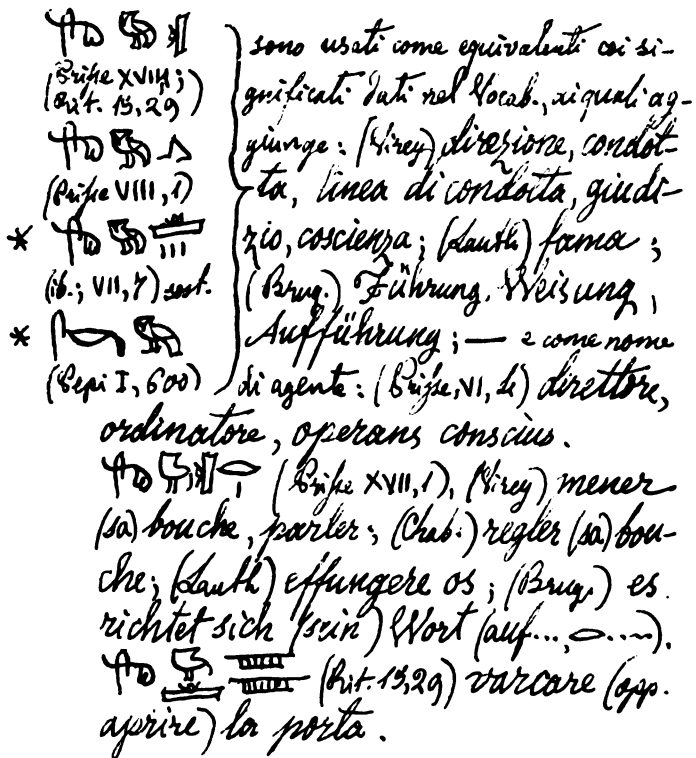 (Prisse XVIII;
Rit. 15,29)
(Prisse VIII, 1)
*
(ib.; VII, 7) sost.
*
(Pepi I, 600)
sono usati come equivalenti coi si-
gnificati dati nel Vocab., ai quali ag-
giunge: (Virey) direzione, condot-
ta, linea di condotta, giudi-
zio, coscienza; (Lauth) fama;
(Brug.) Führung, Weisung,
Aufführung; — e come nome
di agente: (Prisse, VI, direttore,
ordinatore, operans conscius.
(Prisse XVII, 1), (Virey) mener
(sa) bouche, parler; (Chab.) regler (sa) bou-
che; (Lauth) effungere os; (Brug.) es
richtet sich (sein) Wort (auf...,
(Rit. 15,29) varcare (opp.
aprire) la porta.